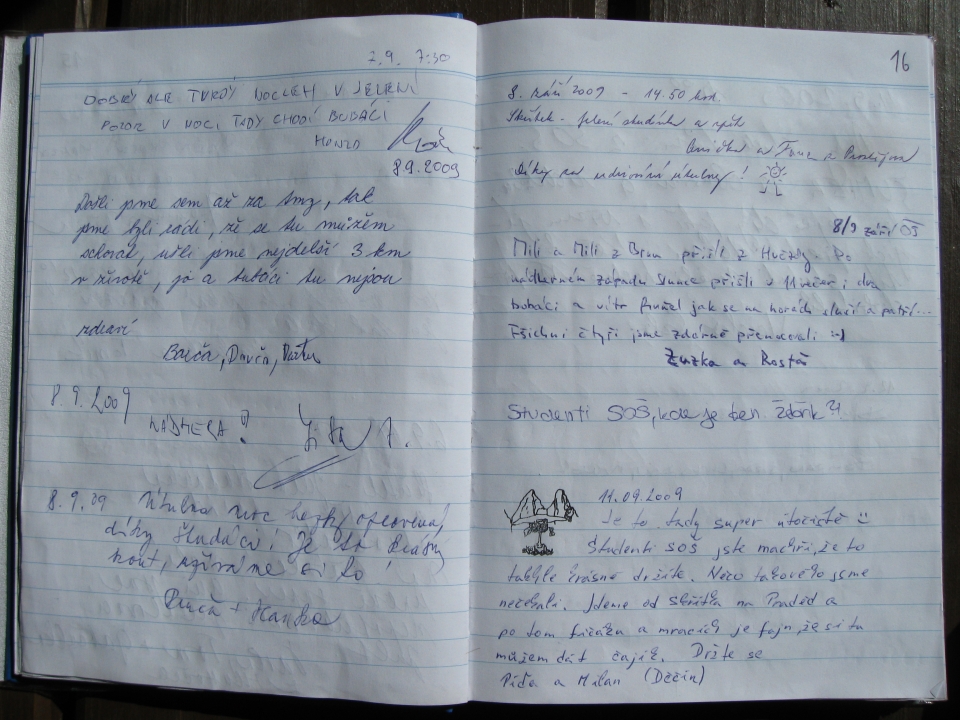 2.9. 7:30
DOBRÝ ALE TVRDÝ NOCLEH V JELENÍ
POZOR V NOCI TADY CHODÍ BUBÁCI
HONZA
8.9.2009
Došli jsme sem až za tmy, tak
jsme byli rádi, že se tu můžem
schovat, ušli jsme nejdelší 3 km
v životě, jo a bubáci tu nejsou
zdraví
Barča, Danča,
8.9.2009
NÁDHERA! Jitka
8.9.09 Útulna moc hezky opravená,
díky študáci! Je to krásný
kout, užíváme si to!
+ Hanka
16
8. září 2009 - 14.50 hod.
Skřítek - Jelení studánka a zpět
a z Prostějova
Díky za udržování útulny!
8/9 září 09
Mili a Mili z Brna přišli z Hvězdy. Po
nádherném západu slunce přišli v 11 večer i dva
bubáci a vítr fičel jak se na horách sluší a patří...
Všichni čtyři jsme zdárně přenocovali :-)
Zuzka a Rosťa
Studenti SOŠ, kde je ten Žďárk?!
11.09.2009
Je to tady super útočiště
Študenti SOŠ jste machři, že to
takhle krásně držíte. Něco takového jsme
nečekali. Jdeme od Skřítka na Praděd a
po tom fičáku a mracích je fajn, že si tu
můžem dát čajík. Držte se
Píďa a Milan (Děčín)